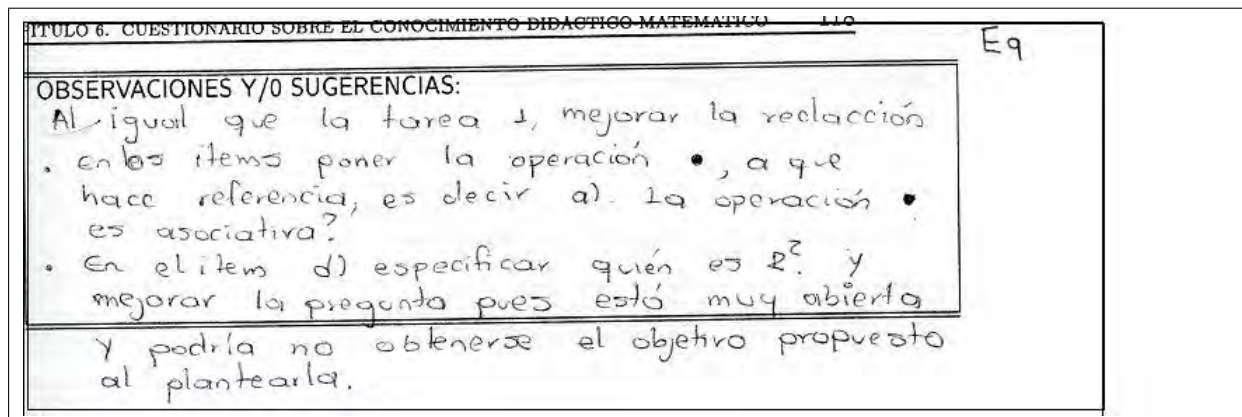 ITULO 6. CUESTIONARIO SOBRE EL CONOCIMIENTO DIDÁCTICO-MATEMÁTICO 118
E9
OBSERVACIONES Y/0 SUGERENCIAS:
Al igual que la tarea 1, mejorar la redacción
• En los ítems poner la operación •, a que
hace referencia, es decir a). La operación •
es asociativa?
• En el item d) especificar quién es R². y
mejorar la pregunta pues está muy abierta
y podría no obtenerse el objetivo propuesto
al plantearla.